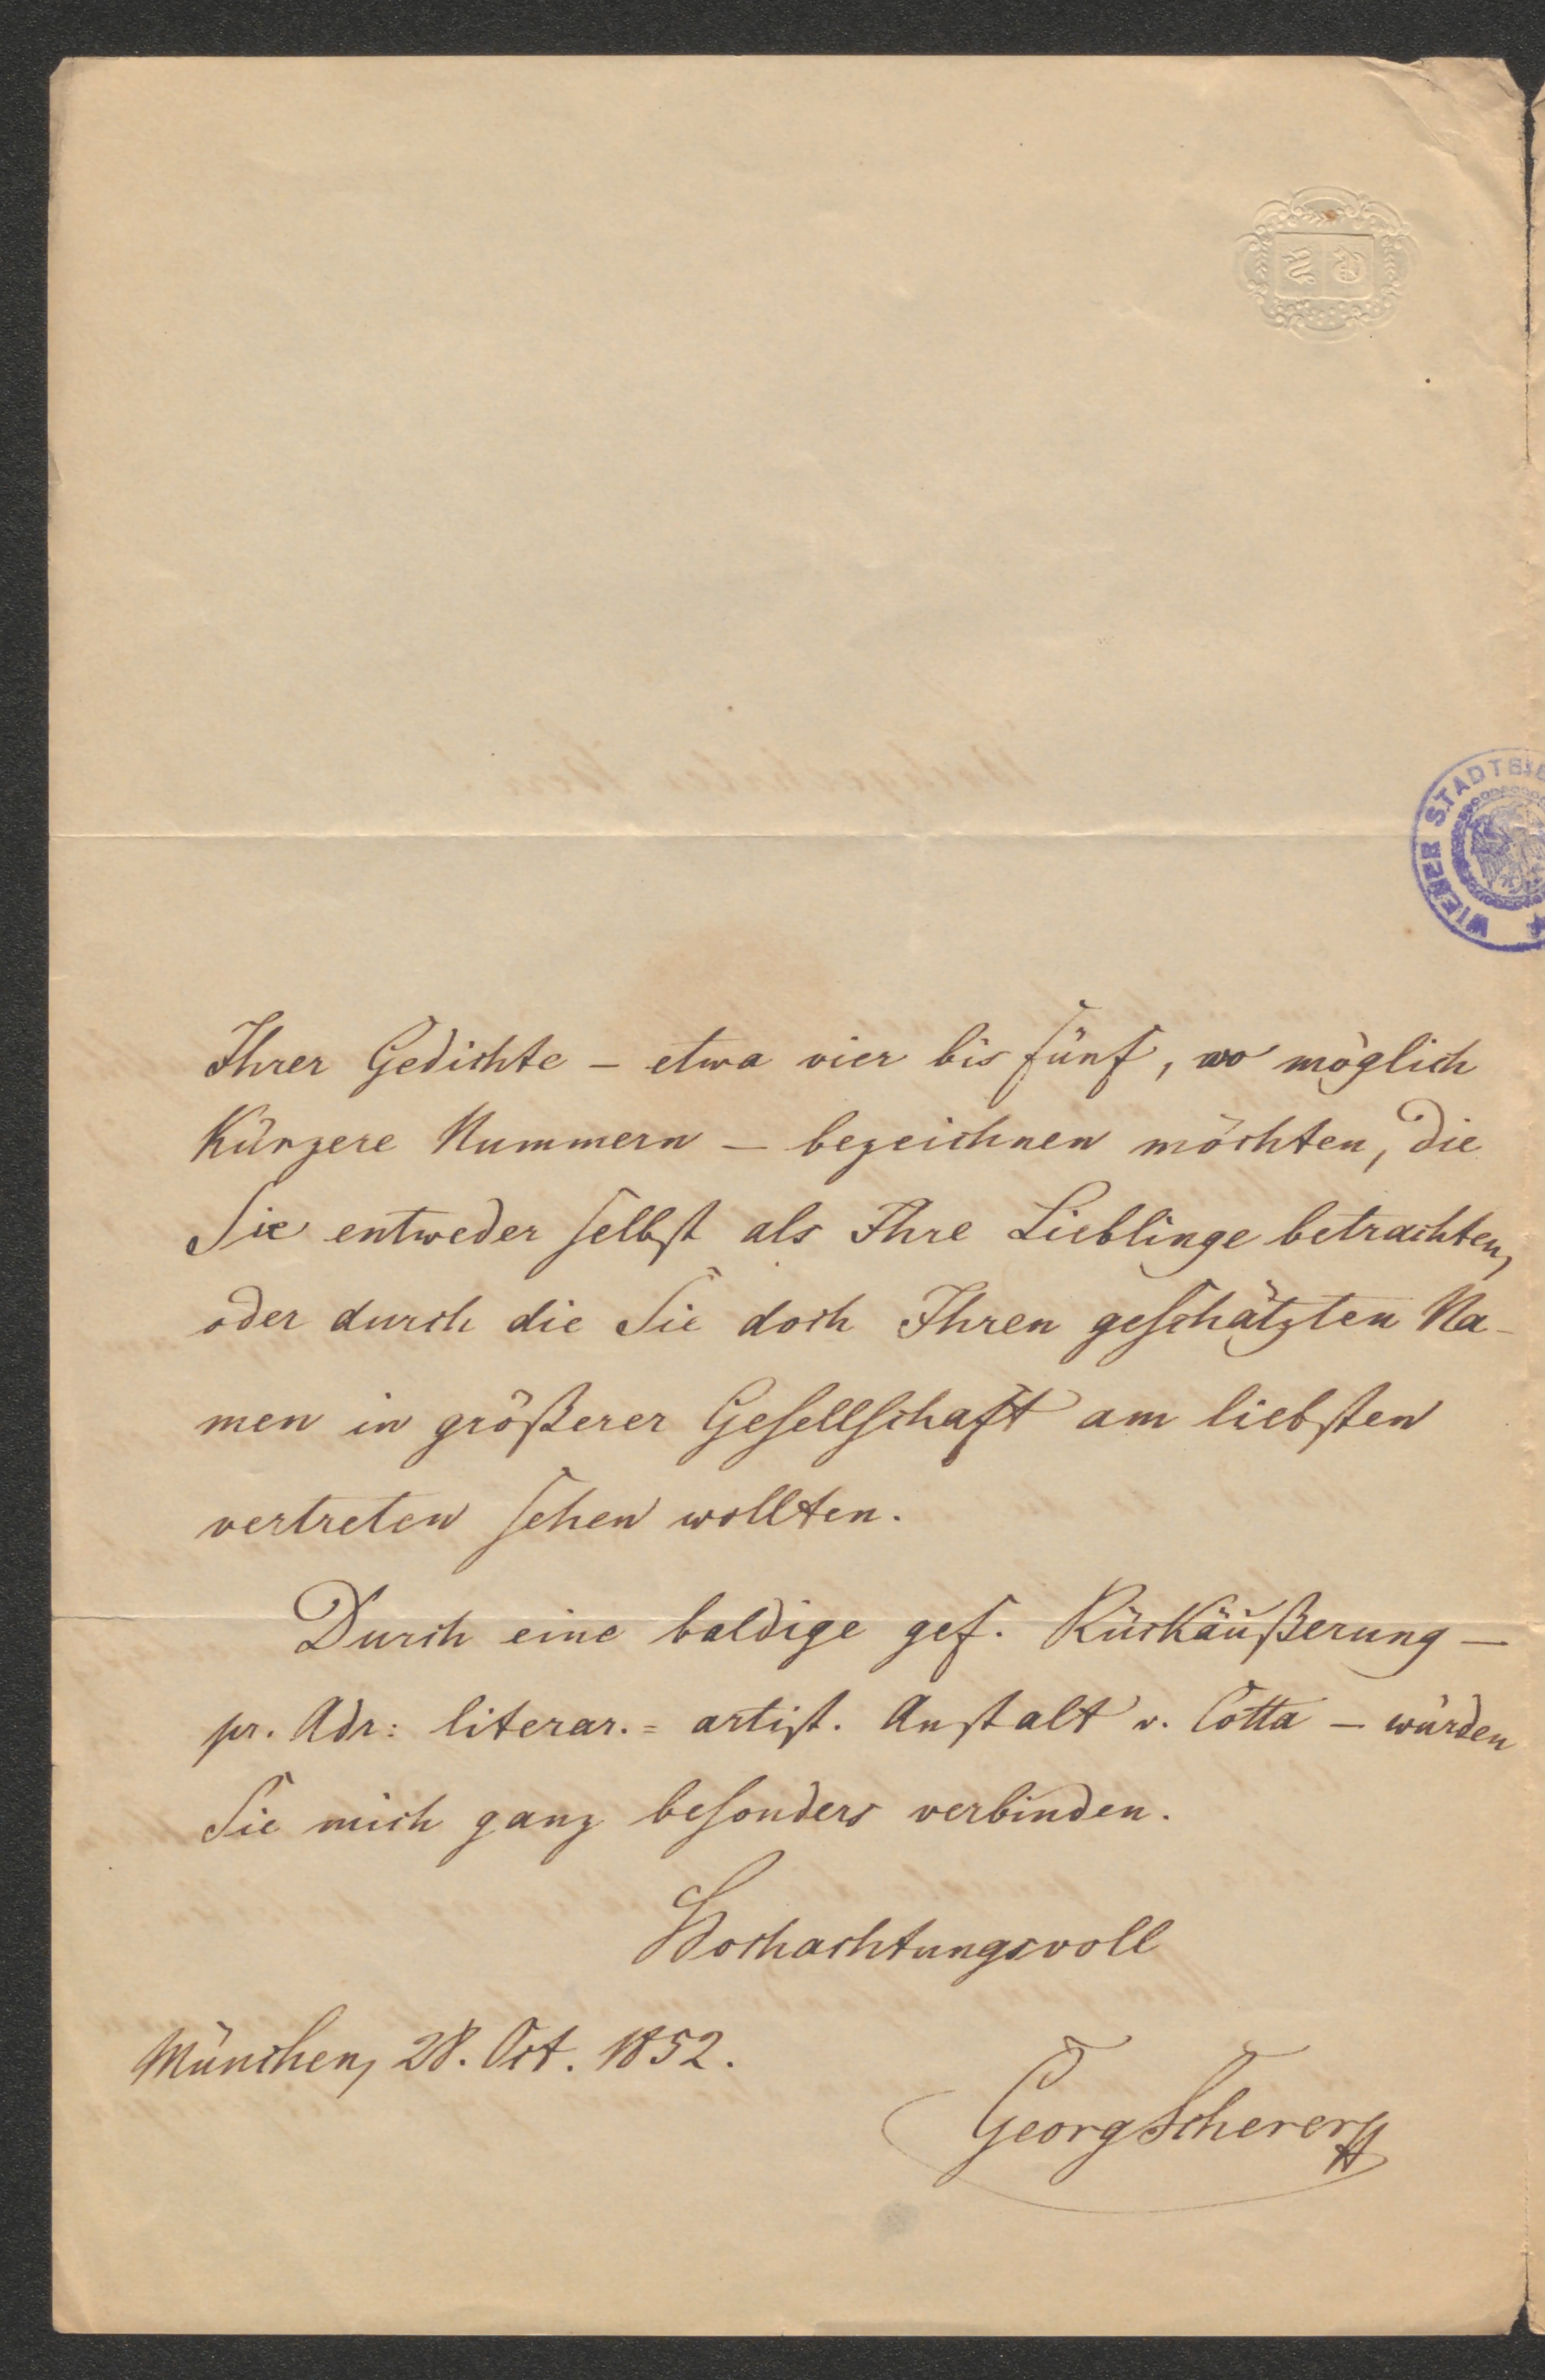 WIENER STADTBI
Ihrer Gedichte – etwa vier bis fünf, wo möglich
kürzere Nummern – bezeichnen möchten, die
Sie entweder selbst als Ihre Lieblinge betrachten,
oder durch die Sie doch Ihren geschätzten Na-
men in größerer Gesellschaft am liebsten
vertreten sehen wollten.
Durch eine baldige gef. Rückäußerung –
pr. Adr: literar.= artist. Anstalt v. Cotta – würden
Sie mich ganz besonders verbinden.
Hochachtungsvoll
München, 28. Oct. 1852.
Georg Scherer